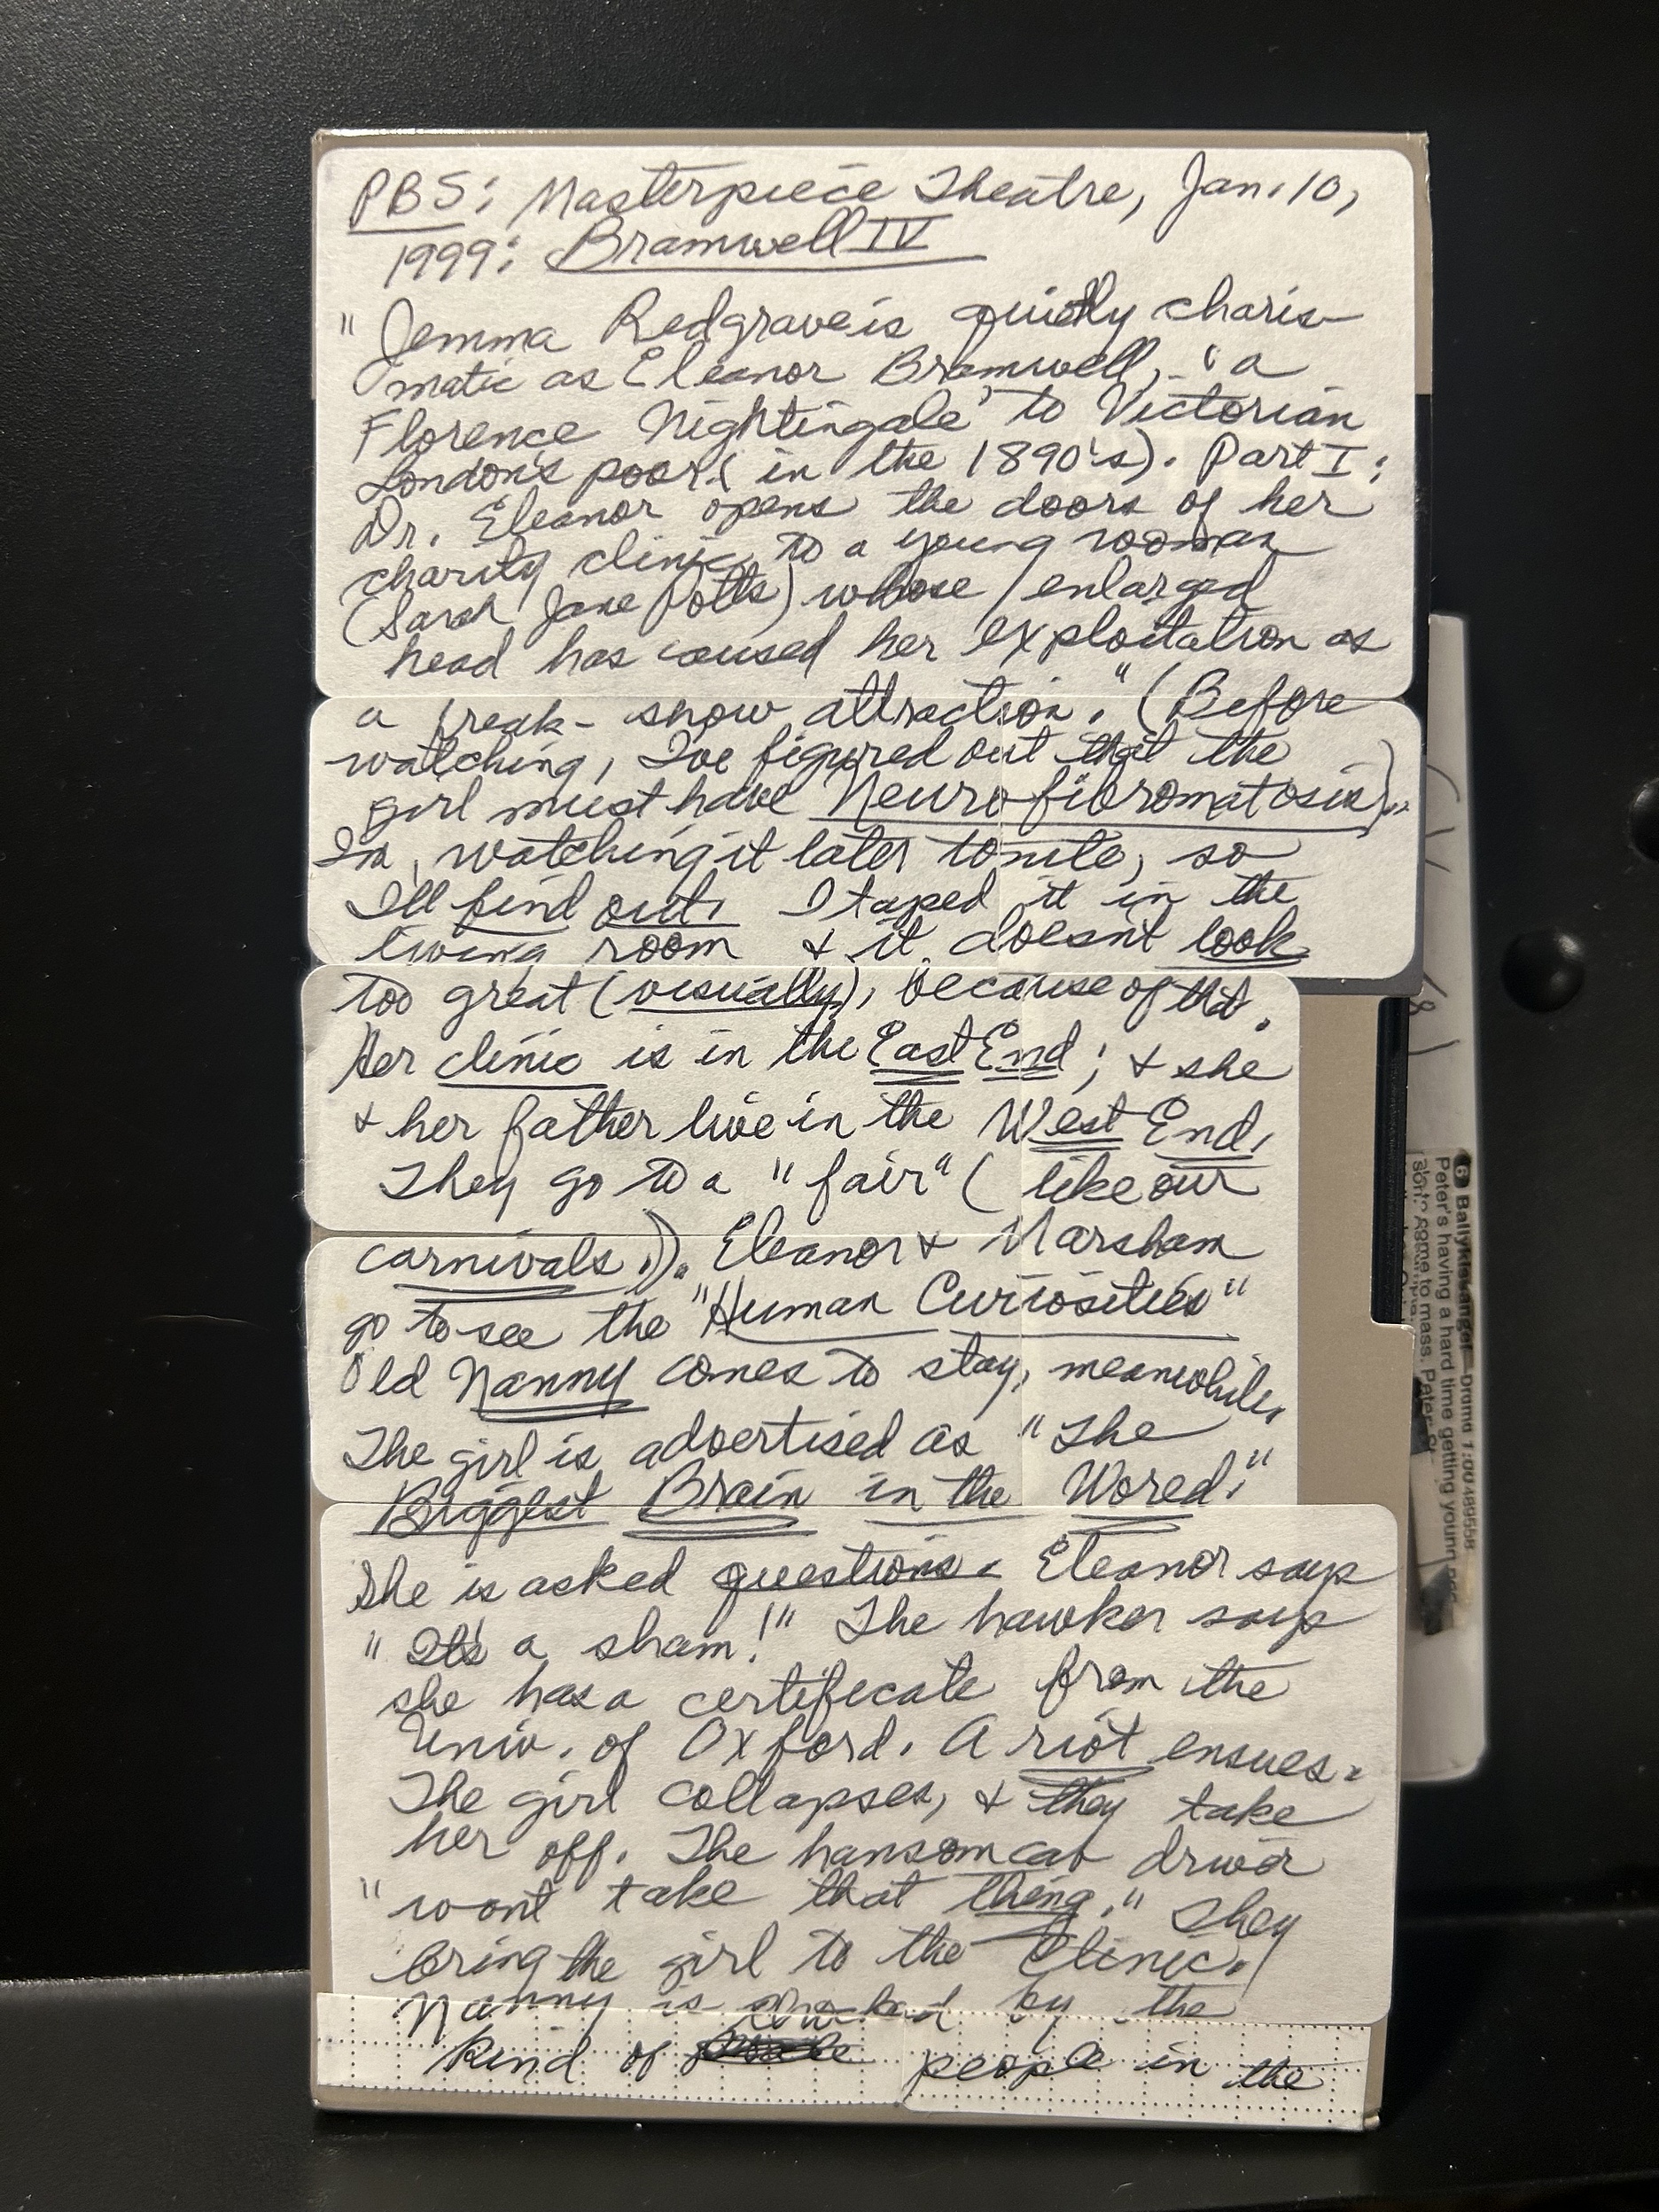 PBS: Masterpiece Theatre, Jan. 10,
1999: Bramwell IV
" Jemma Redgrave is quietly charis-
matic as Eleanor Bramwell, 'a
Florence Nightingale' to Victorian
London's poor (in the 1890's). Part I:
Dr. Eleanor opens the doors of her
charity clinic to a young woman
(Sarah Jane Potts) whose enlarged
head has caused her exploitation as
a freak-show attraction." (Before
watching, I've figured out that the
girl must have Neurofibromatosis).
I'm watching it later tonite, so
I'll find out. I taped it in the
living room & it doesn't look
too great (visually), because of that.
Her clinic is in the East End; & she
& her father live in the West End.
They go to a "fair" (like our
carnivals.)). Eleanor & Marsham
go to see the "Human Curiosities"
Old Nanny comes to stay, meanwhile.
The girl is advertised as "The
Biggest Brain in the World."
She is asked questions. Eleanor says
" It's a sham!" The hawker says
she has a certificate from the
Univ. of Oxford. A riot ensues.
The girl collapses, & they take
her off. The hansom cab driver
"won't take that thing." They
bring the girl to the Clinic.
Nanny is shocked by the
kind of people in the
6 Ballykissangel—Drama 1:00 489558
Peter's having a hard time getting young
to come to mass. Peter